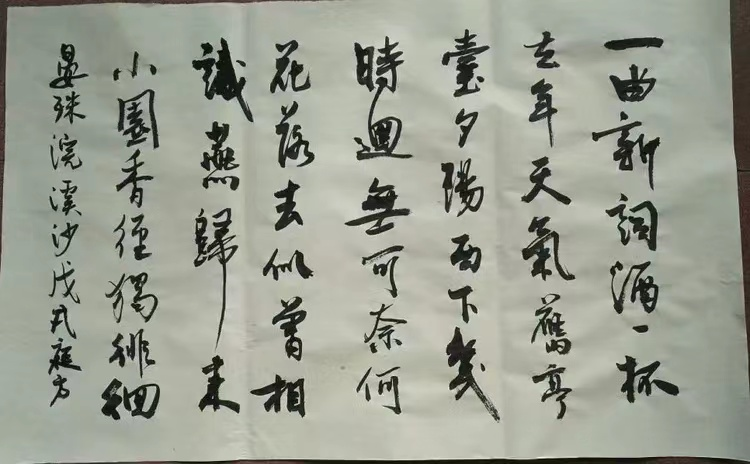 一曲新詞酒一杯
去年天氣舊亭
臺夕陽西下幾
時迴無可奈何
花落去似曾相
識燕歸來
小園香徑獨徘徊
晏殊浣溪沙戊戌庭方